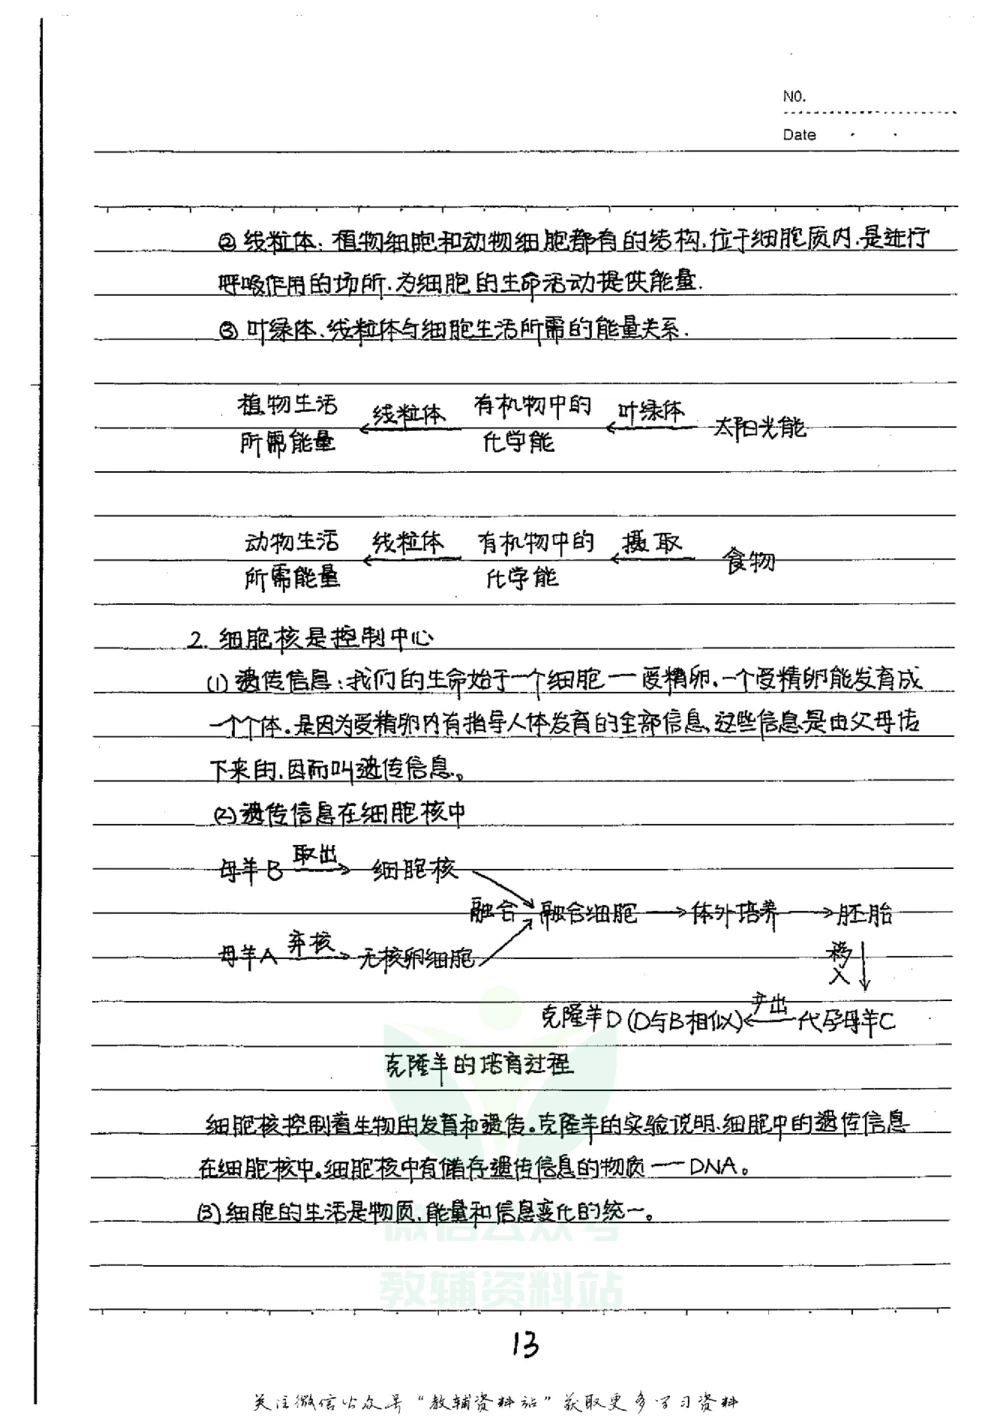 NO.
Date
②线粒体:植物细胞和动物细胞都有的结构,位于细胞质内,是进行
呼吸作用的场所,为细胞的生命活动提供能量.
③叶绿体、线粒体与细胞生活所需的能量关系.
植物生活 线粒体 有机物中的 叶绿体 太阳光能
所需能量 ← 化学能 ←
动物生活 线粒体 有机物中的 摄取 食物
所需能量 ← 化学能 ←
2.细胞核是控制中心
(1)遗传信息:我们的生命始于一个细胞—受精卵.一个受精卵能发育成
一个个体.是因为受精卵内有指导人体发育的全部信息,这些信息是由父母传
下来的,因而叫遗传信息。
(2)遗传信息在细胞核中
母羊B 取出→ 细胞核
融合 融合细胞→体外培养→胚胎
母羊A 弃核→ 无核卵细胞
移入↓
克隆羊D(D与B相似) ←产出 代孕母羊C
克隆羊的培育过程
细胞核控制着生物的发育和遗传。克隆羊的实验说明,细胞中的遗传信息
在细胞核中。细胞核中有储存遗传信息的物质——DNA。
(3)细胞的生活是物质,能量和信息变化的统一。
微信公众号
教辅资料站
13
关注微信公众号"教辅资料站"获取更多学习资料